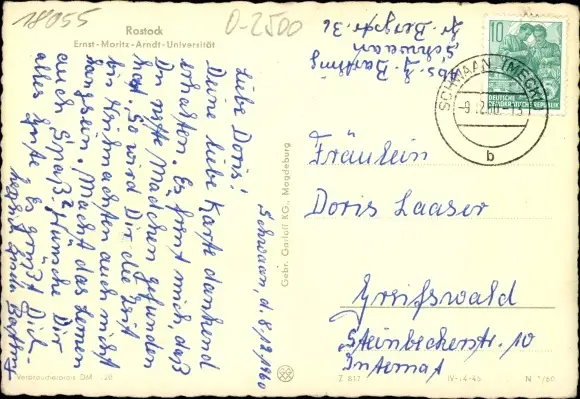 18055
D-2500
Rostock
Ernst-Moritz-Arndt-Universität
Schwaan, d. 8.12.1960
Liebe Doris!
Deine liebe Karte dankend
erhalten. Es freut mich, daß
Du nette Mädchen gefunden
hast. So wird Dir die Zeit
bis Weihnachten auch nicht
lang sein. Macht das Lernen
auch Spaß? Wünsche Dir
alles Gute. Es grüßt Dich
herzlich
Gebr. Garloff KG., Magdeburg
Abs.
Schwaan
Gr. Bergstr. 36
10
DEUTSCHE
DEMOKRATISCHE REPUBLIK
SCHWAAN (MECKL)
-9.12.60-13
b
Fräulein
Doris Laaser
Greifswald
Steinbeckerstr. 10
Internat
Verbraucherpreis DM -.20
Z 817
IV-14-45
N 1/60